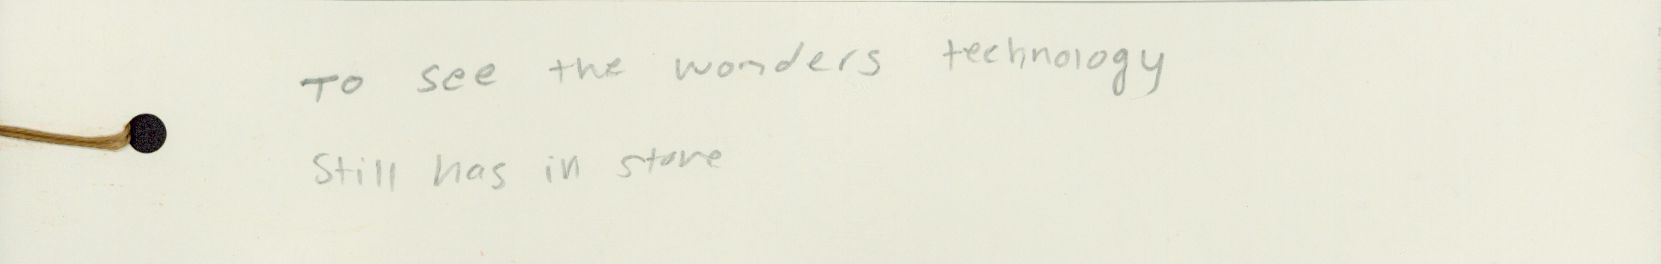 To see the wonders technology
Still has in store